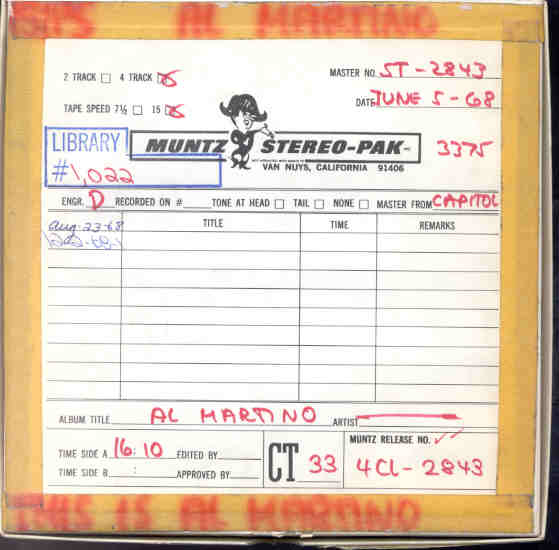 THIS IS AL MARTINO
2 TRACK 4 TRACK
MASTER NO. ST-2843
TAPE SPEED 7½ 15
DATE JUNE 5-68
LIBRARY
#1,022
MUNTZ STEREO-PAK INC.
3375
VAN NUYS, CALIFORNIA 91406
ENGR. D RECORDED ON # TONE AT HEAD TAIL NONE MASTER FROM CAPITOL
TITLE TIME REMARKS
Aug-23-68
ALBUM TITLE AL MARTINO ARTIST
TIME SIDE A 16:10 EDITED BY
TIME SIDE B : APPROVED BY
CT 33
MUNTZ RELEASE NO.
4CL-2843
THIS IS AL MARTINO